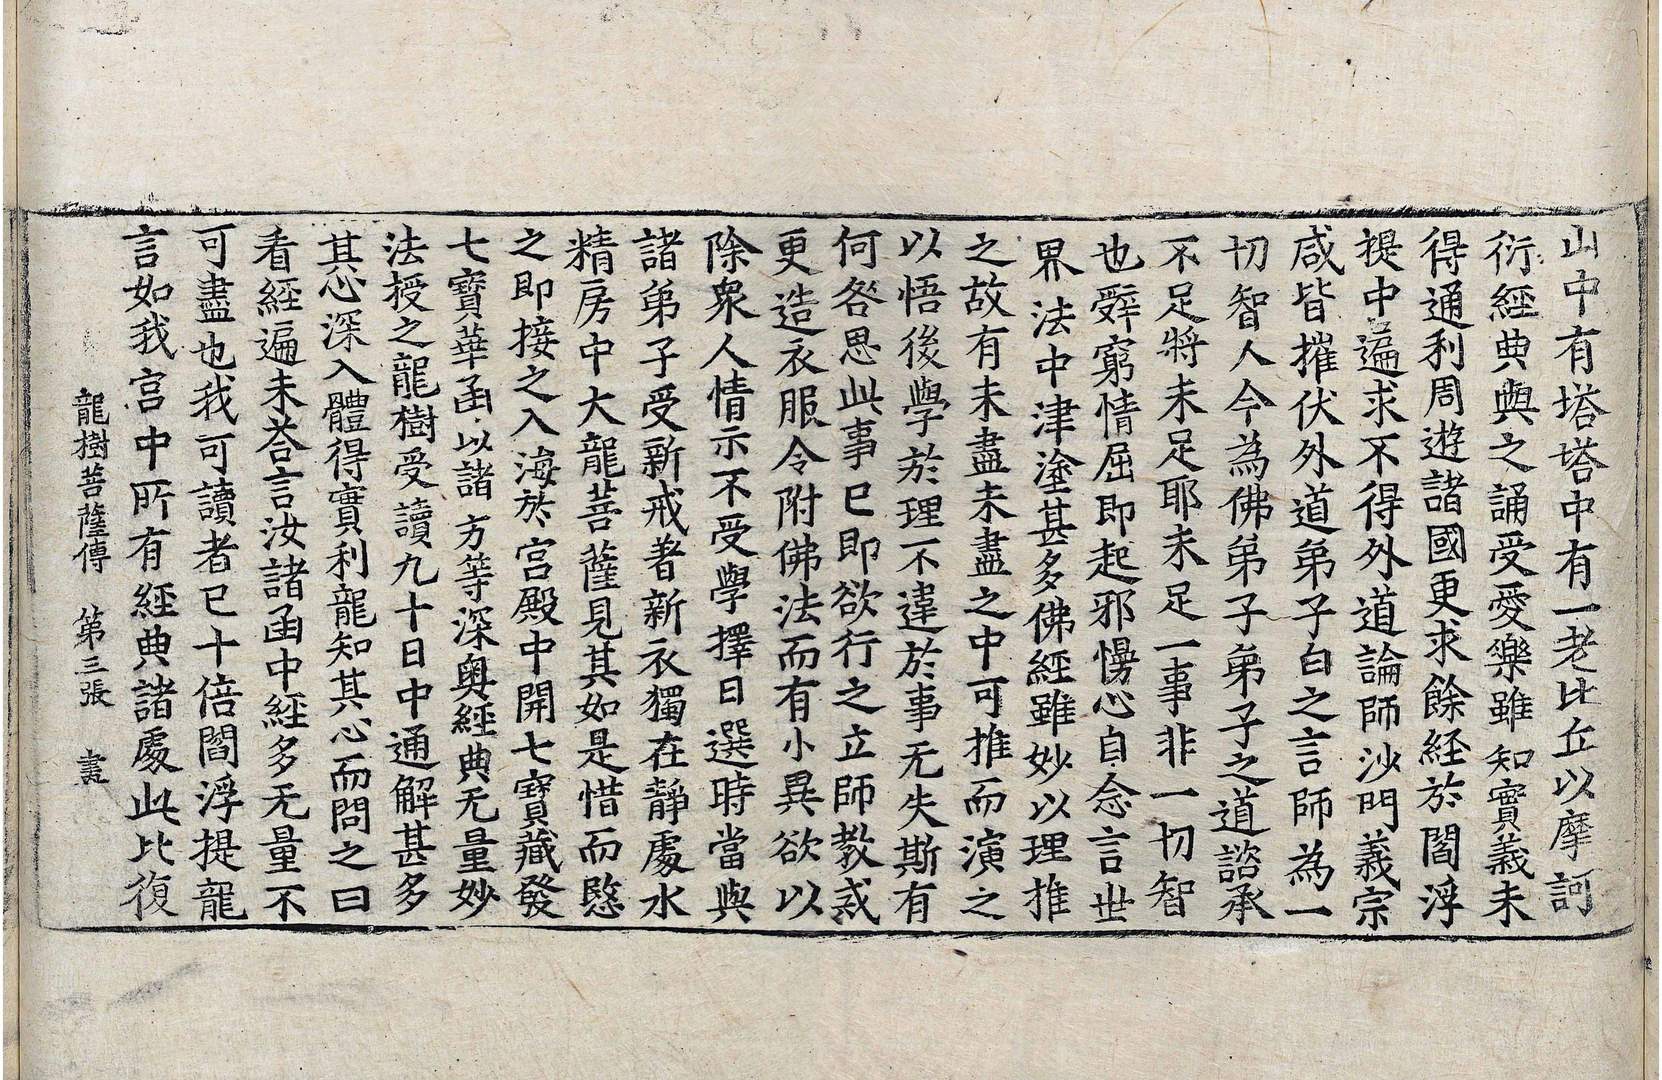 山中有塔塔中有一老比丘以摩訶
衍經典與之誦受愛樂雖知實義未
得通利周遊諸國更求餘經於閻浮
提中遍求不得外道論師沙門義宗
咸皆摧伏外道弟子白之言師為一
切智人今為佛弟子弟子之道諮承
不足將未足耶未足一事非一切智
也辭窮情屈即起邪慢心自念言世
界法中津塗甚多佛經雖妙以理推
之故有未盡未盡之中可推而演之
以悟後學於理不違於事无失斯有
何咎思此事已即欲行之立師教戒
更造衣服令附佛法而有小異欲以
除衆人情示不受學擇日選時當與
諸弟子受新戒著新衣獨在靜處水
精房中大龍菩薩見其如是惜而愍
之即接之入海於宮殿中開七寶藏發
七寶華函以諸方等深奧經典无量妙
法授之龍樹受讀九十日中通解甚多
其心深入體得寶利龍知其心而問之曰
看經遍未荅言汝諸函中經多无量不
可盡也我可讀者已十倍閻浮提龍
言如我宮中所有經典諸處此比復
龍樹菩薩傳 第三張 畫